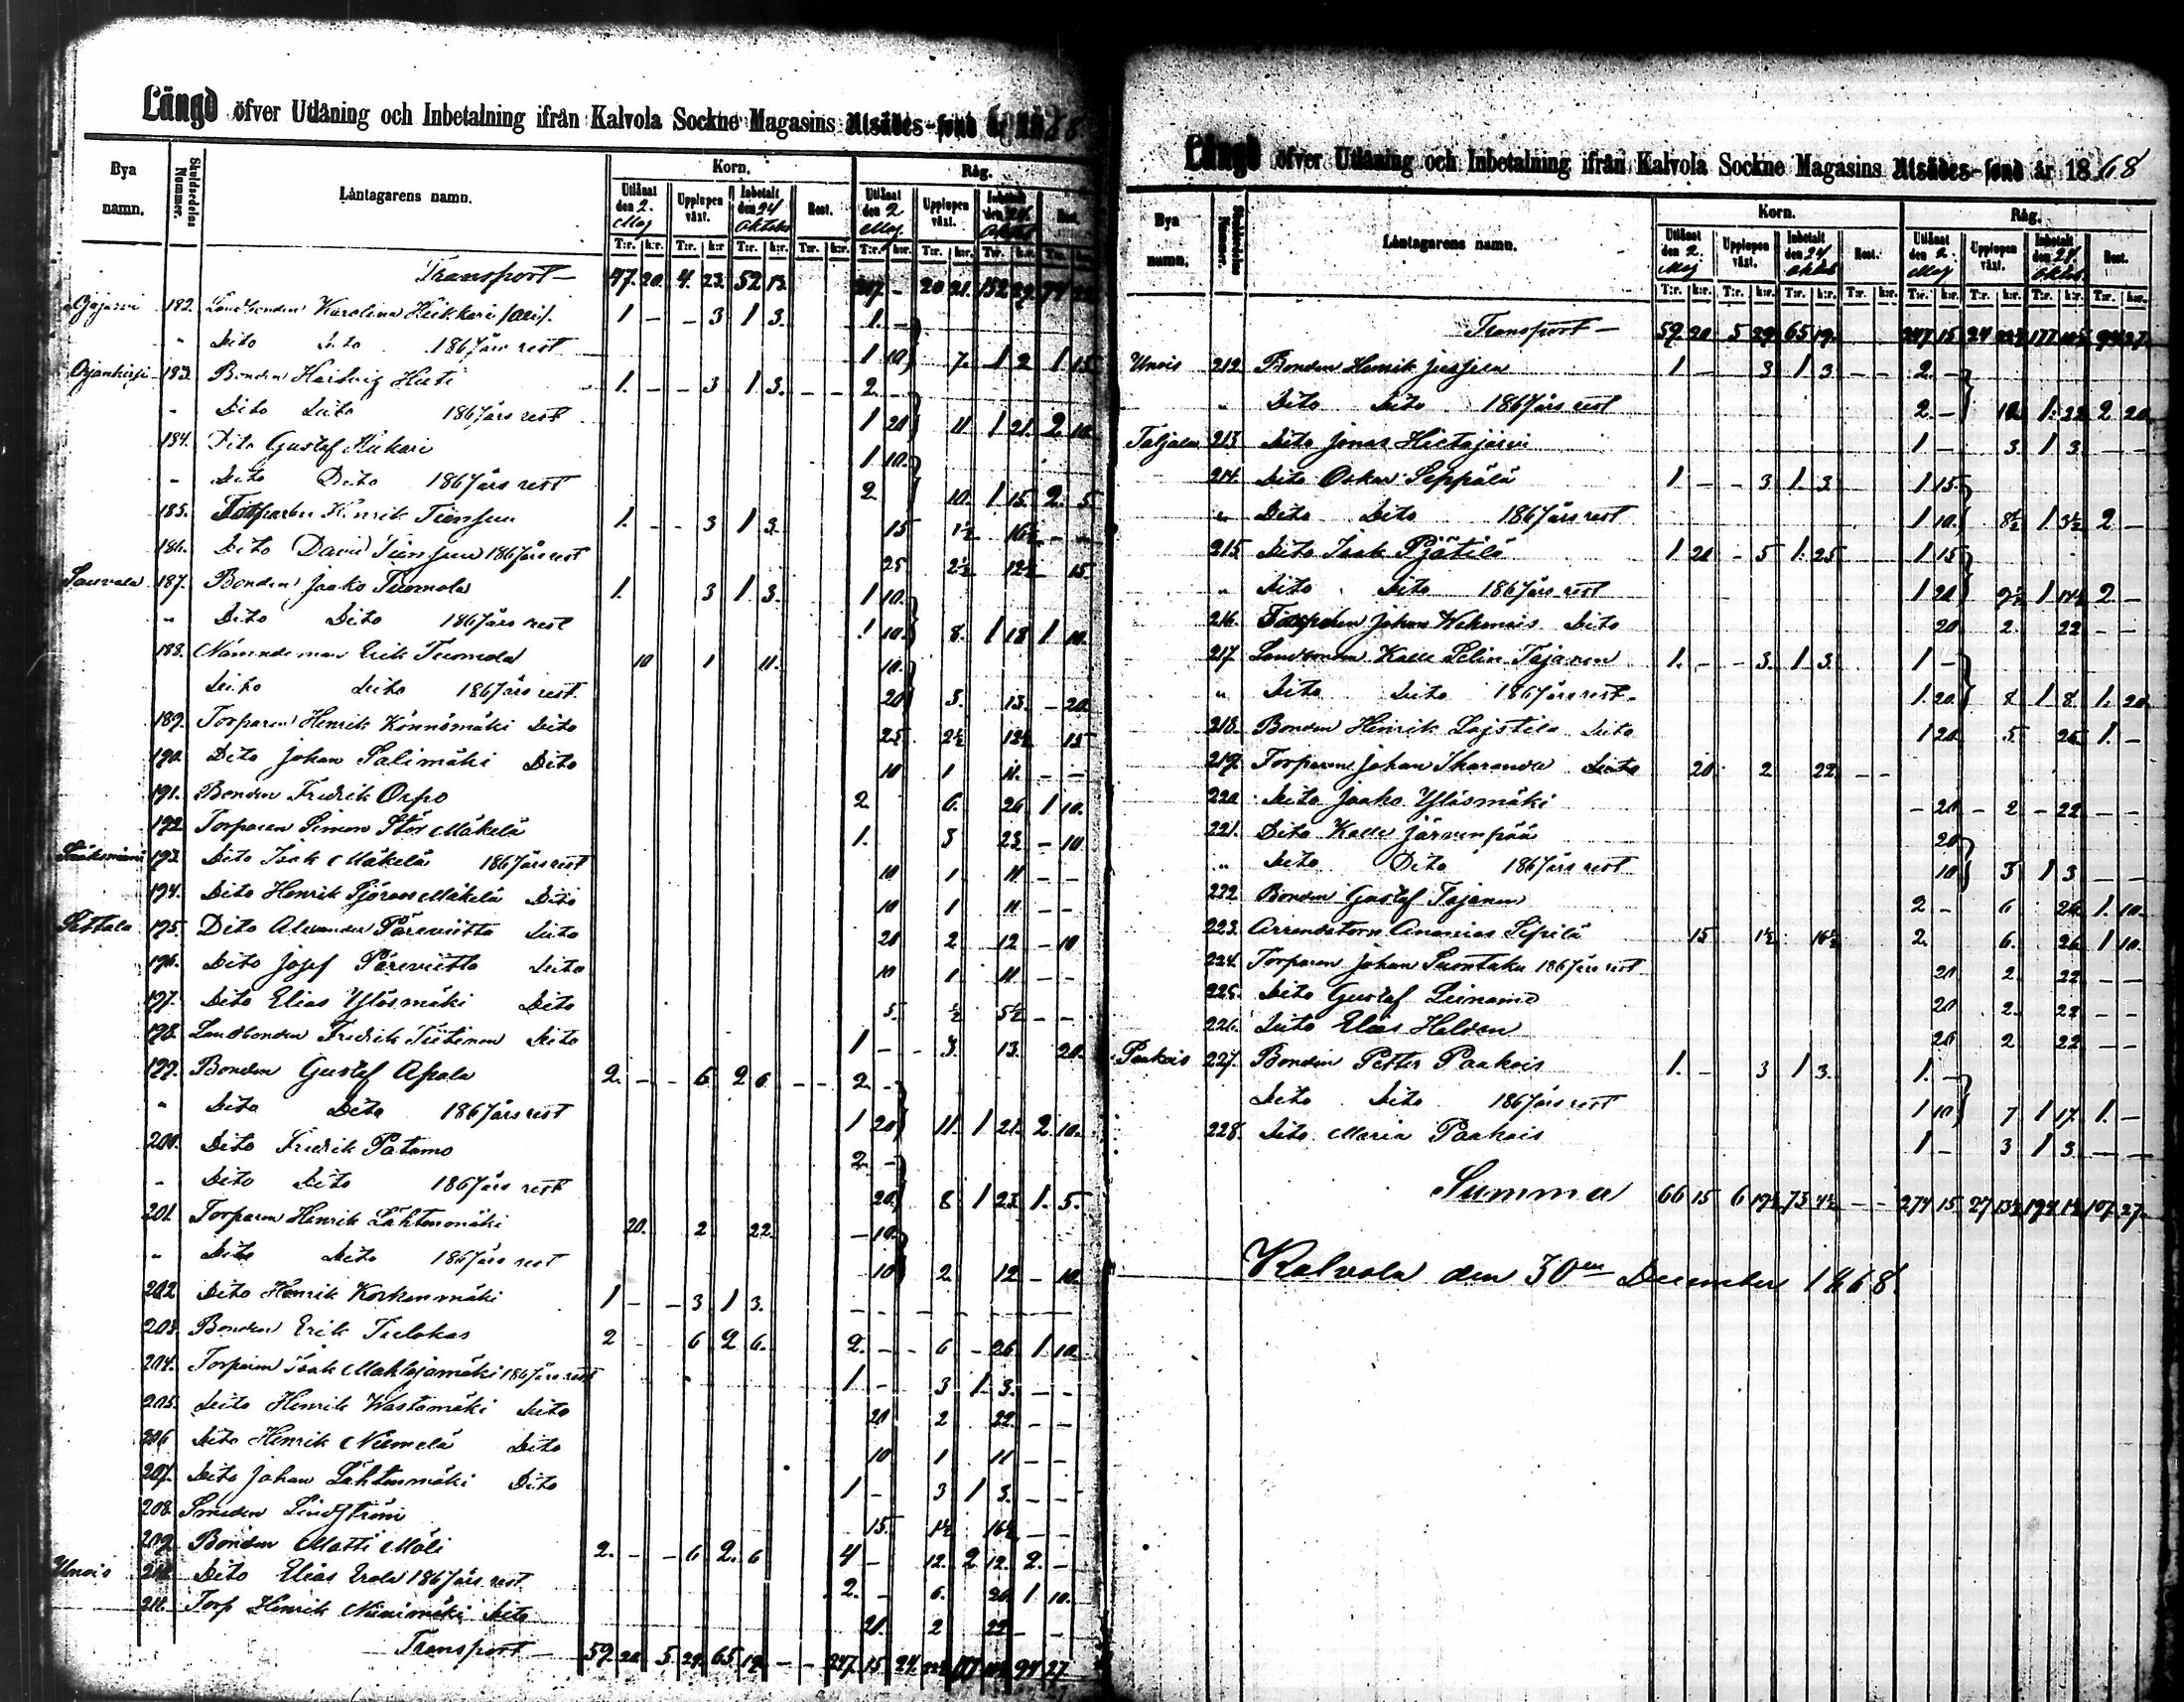 Längd öfver Utlåning och Inbetalning ifrån Kalvola Sockne Magasins Utsädes-fond år 1868
Bya namn. Skuldsedelns Nummer. Låntagarens namn. Korn. Råg.
Utlånat den 2. Maj Upplupen växt. Inbetalt den 24 Oktober Rest. Utlånat den 2 Maj Upplupen växt. Inbetalt den 24 Oktob Rest.
T:r. k:r. T:r. k:r T:r. k:r. T:r. k:r. T:r. k:r. T:r. k:r. T:r. k:r. T:r. k:r.
Transport — 47. 20. 4. 23. 52 13.
182. Landbonden Karolina Heikkari 1 — — 3 1 3. 1. —
" Dito Dito 1867 års rest 1 10 7. 1 2 1 15
183. Bonden Hartvig Hieti 1. — — 3 1. 3. — — 2. —
" Dito Dito 1867 års rest 1 20 11. 1 21. 2 10.
184. Dito Gustaf Kiikari 1 10.
" Dito Dito 1867 års rest 2 10. 1 15 2. 5
185. Torparen Henrik Tiensuu 1. — — 3 1 3. 15 1½ 16½ — —
186. Dito David Tiensuu 1867 års rest 25 2½ 12½ 15.
Sauvala 187. Bonden Jaako Tuomola 1. 3 1 3. 1 10.
" Dito Dito 1867 års rest 1 10. 8. 1 18 1 10.
188. Nämndeman Erik Tuomola 10 1 11. 10.
Dito Dito 1867 års rest. 20 3. 13. — 20.
189. Torparen Henrik Könnömäki Dito 25 2½ 12½ 15
190. Dito Johan Salimäki Dito 10 1 11. — —
191. Bonden Fredrik Orpo 2 6. 26 1 10.
192. Torparen Simon Stor Mäkelä 1. 3 23 — 10.
193. Dito Isak Mäkelä 1867 års rest 10 1 11 — —
194. Dito Henrik Mäkelä Dito 10 1 11 — —
Sittala 195. Dito Alexander Päreviitta Dito 20 2 12 — 10
196. Dito Josef Päreviitta Dito 10 1 11 — —
197. Dito Elias Ylösmäki Dito 5. ½ 5½ — —
198. Landbonden Fredrik Tiitinen Dito 1 — — 3. 13. 20.
199. Bonden Gustaf Apala 2. — — 6. 2 6 — — 2. —
" Dito Dito 1867 års rest 1 20 11. 1 21. 2. 10.
200. Dito Fredrik Patamo 2. —
" Dito Dito 1867 års rest 20. 8 1 23. 1. 5.
201. Torparen Henrik Lähteenmäki 20. 2 22. — 10.
" Dito Dito 1867 års rest 10 2 12 — 10.
202. Dito Henrik Korkenmäki 1 — — 3 1 3. — — — — — — — —
203. Bonden Erik Tulokas 2 6 2 6. 2. — — 6 — 26. 1 10.
204. Torparen Isak 1867 års rest 1 — 3 1 3. — —
205. Dito Henrik Wastamäki Dito 20 2 22. — —
206 Dito Henrik Niemelä Dito 10 1 11 — —
207. Dito Johan Lähtenmäki Dito 1 — 3 1 3. — —
208. Smeden Lindström 15. 1½ 16½ — —
209. Bonden Matti Mäli 2. — — 6 2. 6 4 — 12. 2 12. 2. —
Unois 210. Dito Elias Erola 1867 års rest 2. — 6. 26. 1 10.
211. Torp Henrik Niinimäki Dito 20. 2 22 — —
Transport — 59. 20. 5. 29. 65. 19. — — 247. 15 24. 94 27
Längd öfver Utlåning och Inbetalning ifrån Kalvola Sockne Magasins Utsädes-fond år 1868
Bya namn. Skuldsedelns Nummer. Låntagarens namn. Korn. Råg.
Utlånat den 2. Maj Upplupen växt. Inbetalt den 24 Oktob Rest. Utlånat den 2. Maj Upplupen växt. Inbetalt den 24. Oktob. Rest.
T:r. k:r. T:r. k:r. T:r. k:r. T:r. k:r. T:r. k:r. T:r. k:r. T:r. k:r. T:r. k:r.
Transport — 59. 20 5 29. 65 19. 247 15 24 94 27.
Unois 212. Bonden Henrik Jussila 1 — 3 1 3 — — 2. —
" Dito Dito 1867 års rest 2. — 10. 1. 22 2 20
Taljala 213. Dito Jonas Hietajärvi 1 — 3. 1 3. — —
214. Dito Oskar Seppälä 1. — — 3 1. 3 1 15.
" Dito Dito 1867 års rest 1 10. 8½ 1 3½ 2 —
215. Dito Isak Pjätilä 1 20 — 5 1. 25 1 15
" Dito Dito 1867 års rest 1 20 2 —
216. Torparen Johan Dito 20 2. 22 — —
217. Landbonden Kalle Selin Tajanen 1. — — 3. 1 3. 1 —
" Dito Dito 1867 års rest. 1. 20. 8 1 8. 1. 20
218. Bonden Henrik Lajstila Dito 1 20 5. 25 1. —
219. Torparen Johan Dito 20. 2 22. — —
220 Dito Jaako Ylösmäki — 20 — 2 — 22 — —
221. Dito Kalle Järvenpää 20
" Dito Dito 1867 års rest 10 3 1 3 — —
222. Bonden Gustaf Tajanen 2 — 6 26 1. 10.
223. Arrendatorn Ananias Sipilä 15 1½ 16½ 2. 6. 26 1 10.
224. Torparen Johan 1867 års rest 20 2. 22 — —
225. Dito Gustaf 20 2. 22 — —
226. Dito Elias Helden 20 2 22 — —
Paakois 227. Bonden Petter Paakois 1. — 3 1 3. 1. —
Dito Dito 1867 års rest 1 10 7 1 17. 1. —
228. Dito Maria Paakois 1 — 3 1 3. — —
Summa 66 15 6 19½ 73 4½ — — 274 15. 27 13½ 194 1½ 107. 27.
Kalvola den 30en December 1868.